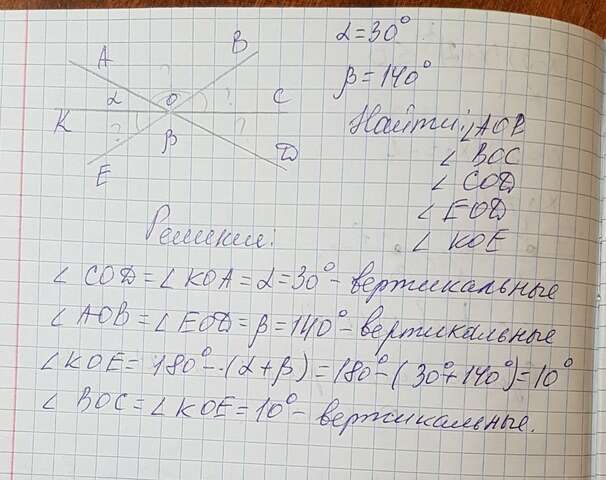 A
B
α
O
?
C
K
?
?
β
E
Д
α = 30°
β = 140°
Найти: ∠AOB
∠ BOC
∠ COД
∠ EOД
∠ KOE
Решение:
∠ COД = ∠ KOA = α = 30° - вертикальные
∠ AOB = ∠ EOД = β = 140° - вертикальные
∠ KOE = 180° - (α + β) = 180° - (30° + 140°) = 10°
∠ BOC = ∠ KOE = 10° - вертикальные.